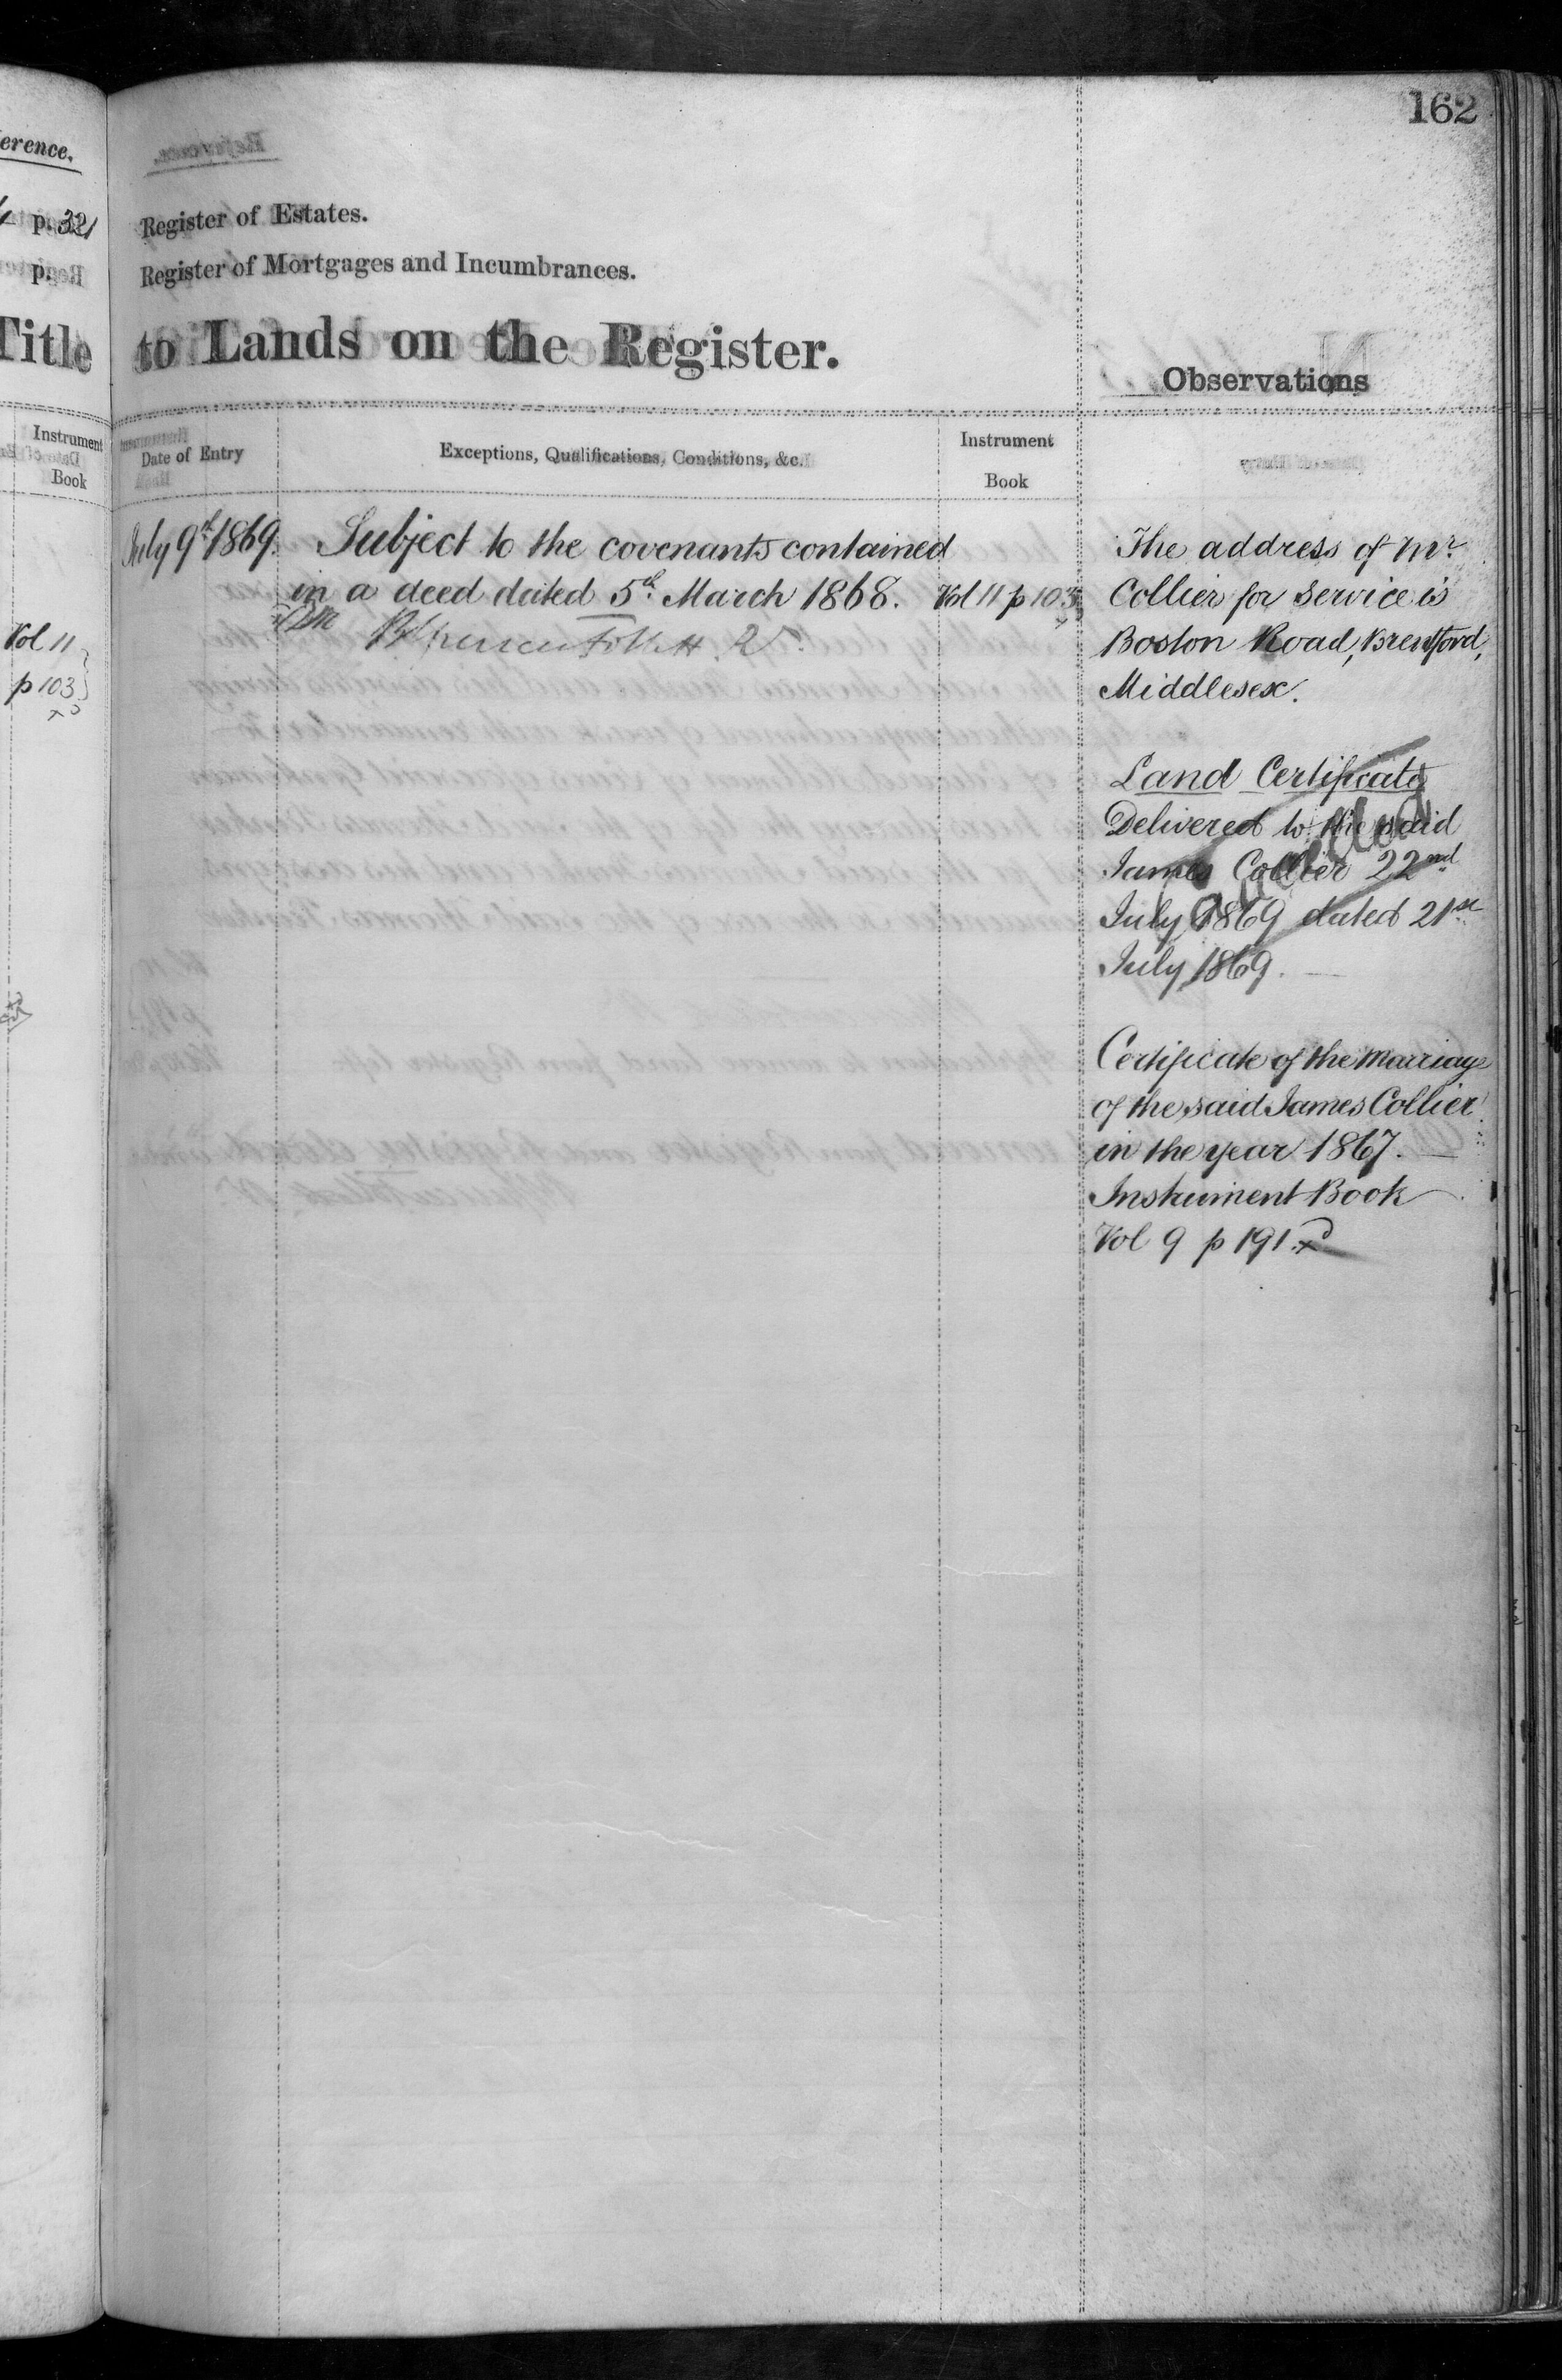 162
erence.
p. 321
p.
Title
Instrument
Book
Vol 11
p 103
Register of Estates.
Register of Mortgages and Incumbrances.
to Lands on the Register.
Observations
Date of Entry
Exceptions, Qualifications, Conditions, &c.
Instrument
Book
July 9th 1869.
Subject to the covenants contained
in a deed dated 5th March 1868.
Vol 11 p 103
Follett. R.
The address of Mr.
Collier for service is
Boston Road, Brentford,
Middlesex.
Land Certificate
Delivered to the said
James Collier 22nd
July 1869 dated 21st
July 1869.
Cancelled
Certificate of the Marriage
of the said James Collier
in the year 1867.
Instrument Book
Vol 9 p 191.